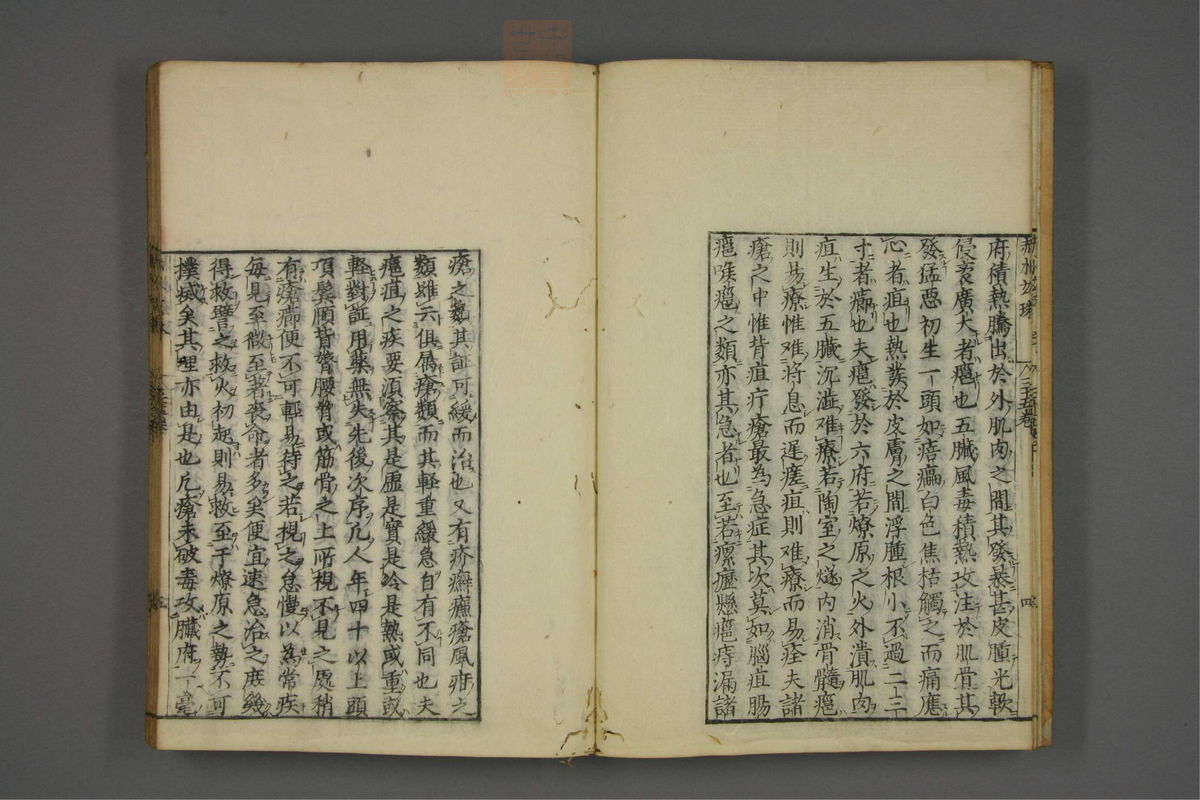 府積熱騰出於外肌肉之間其發暴甚皮腫光軟
侵衺廣大者癰也五臟風毒積熱攻注於肌骨其
發猛惡初生一頭如㾦㿔白色焦枯觸之而痛應
心者疽也熱發於皮膚之間浮腫根小不過二三
寸者癤也夫癰發於六府若燎原之火外潰肌肉
疽生於五臟沉澁难療若陶室之燧內消骨髓癰
則易療惟难將息而遲瘥疽則难療而易痊夫諸
瘡之中惟背疽疔瘡最為急症其次莫如腦疽腸
癰喉癰之類亦其急者也至若瘰癧懸癰痔漏諸
瘡之類其証可緩而治也又有疥癬癧瘡風疳之
類雖云俱屬瘡類而其軽重緩急自有不同也夫
癰疽之疾要須察其是虛是實是冷是熱或重或
軽對証用藥無失先後次序凡人年四十以上頭
項鬂頥背膂腰脅或筋骨之上所視不見之處稍
有瘡癤便不可輕易待之若視之怠慢以為常疾
每見至微至著喪命者多矣便宜速急治之庶幾
得救譬之救火初起則易救至于燎原之勢不可
撲滅矣其理亦由是也凡瘡未破毒攻臟府一毫